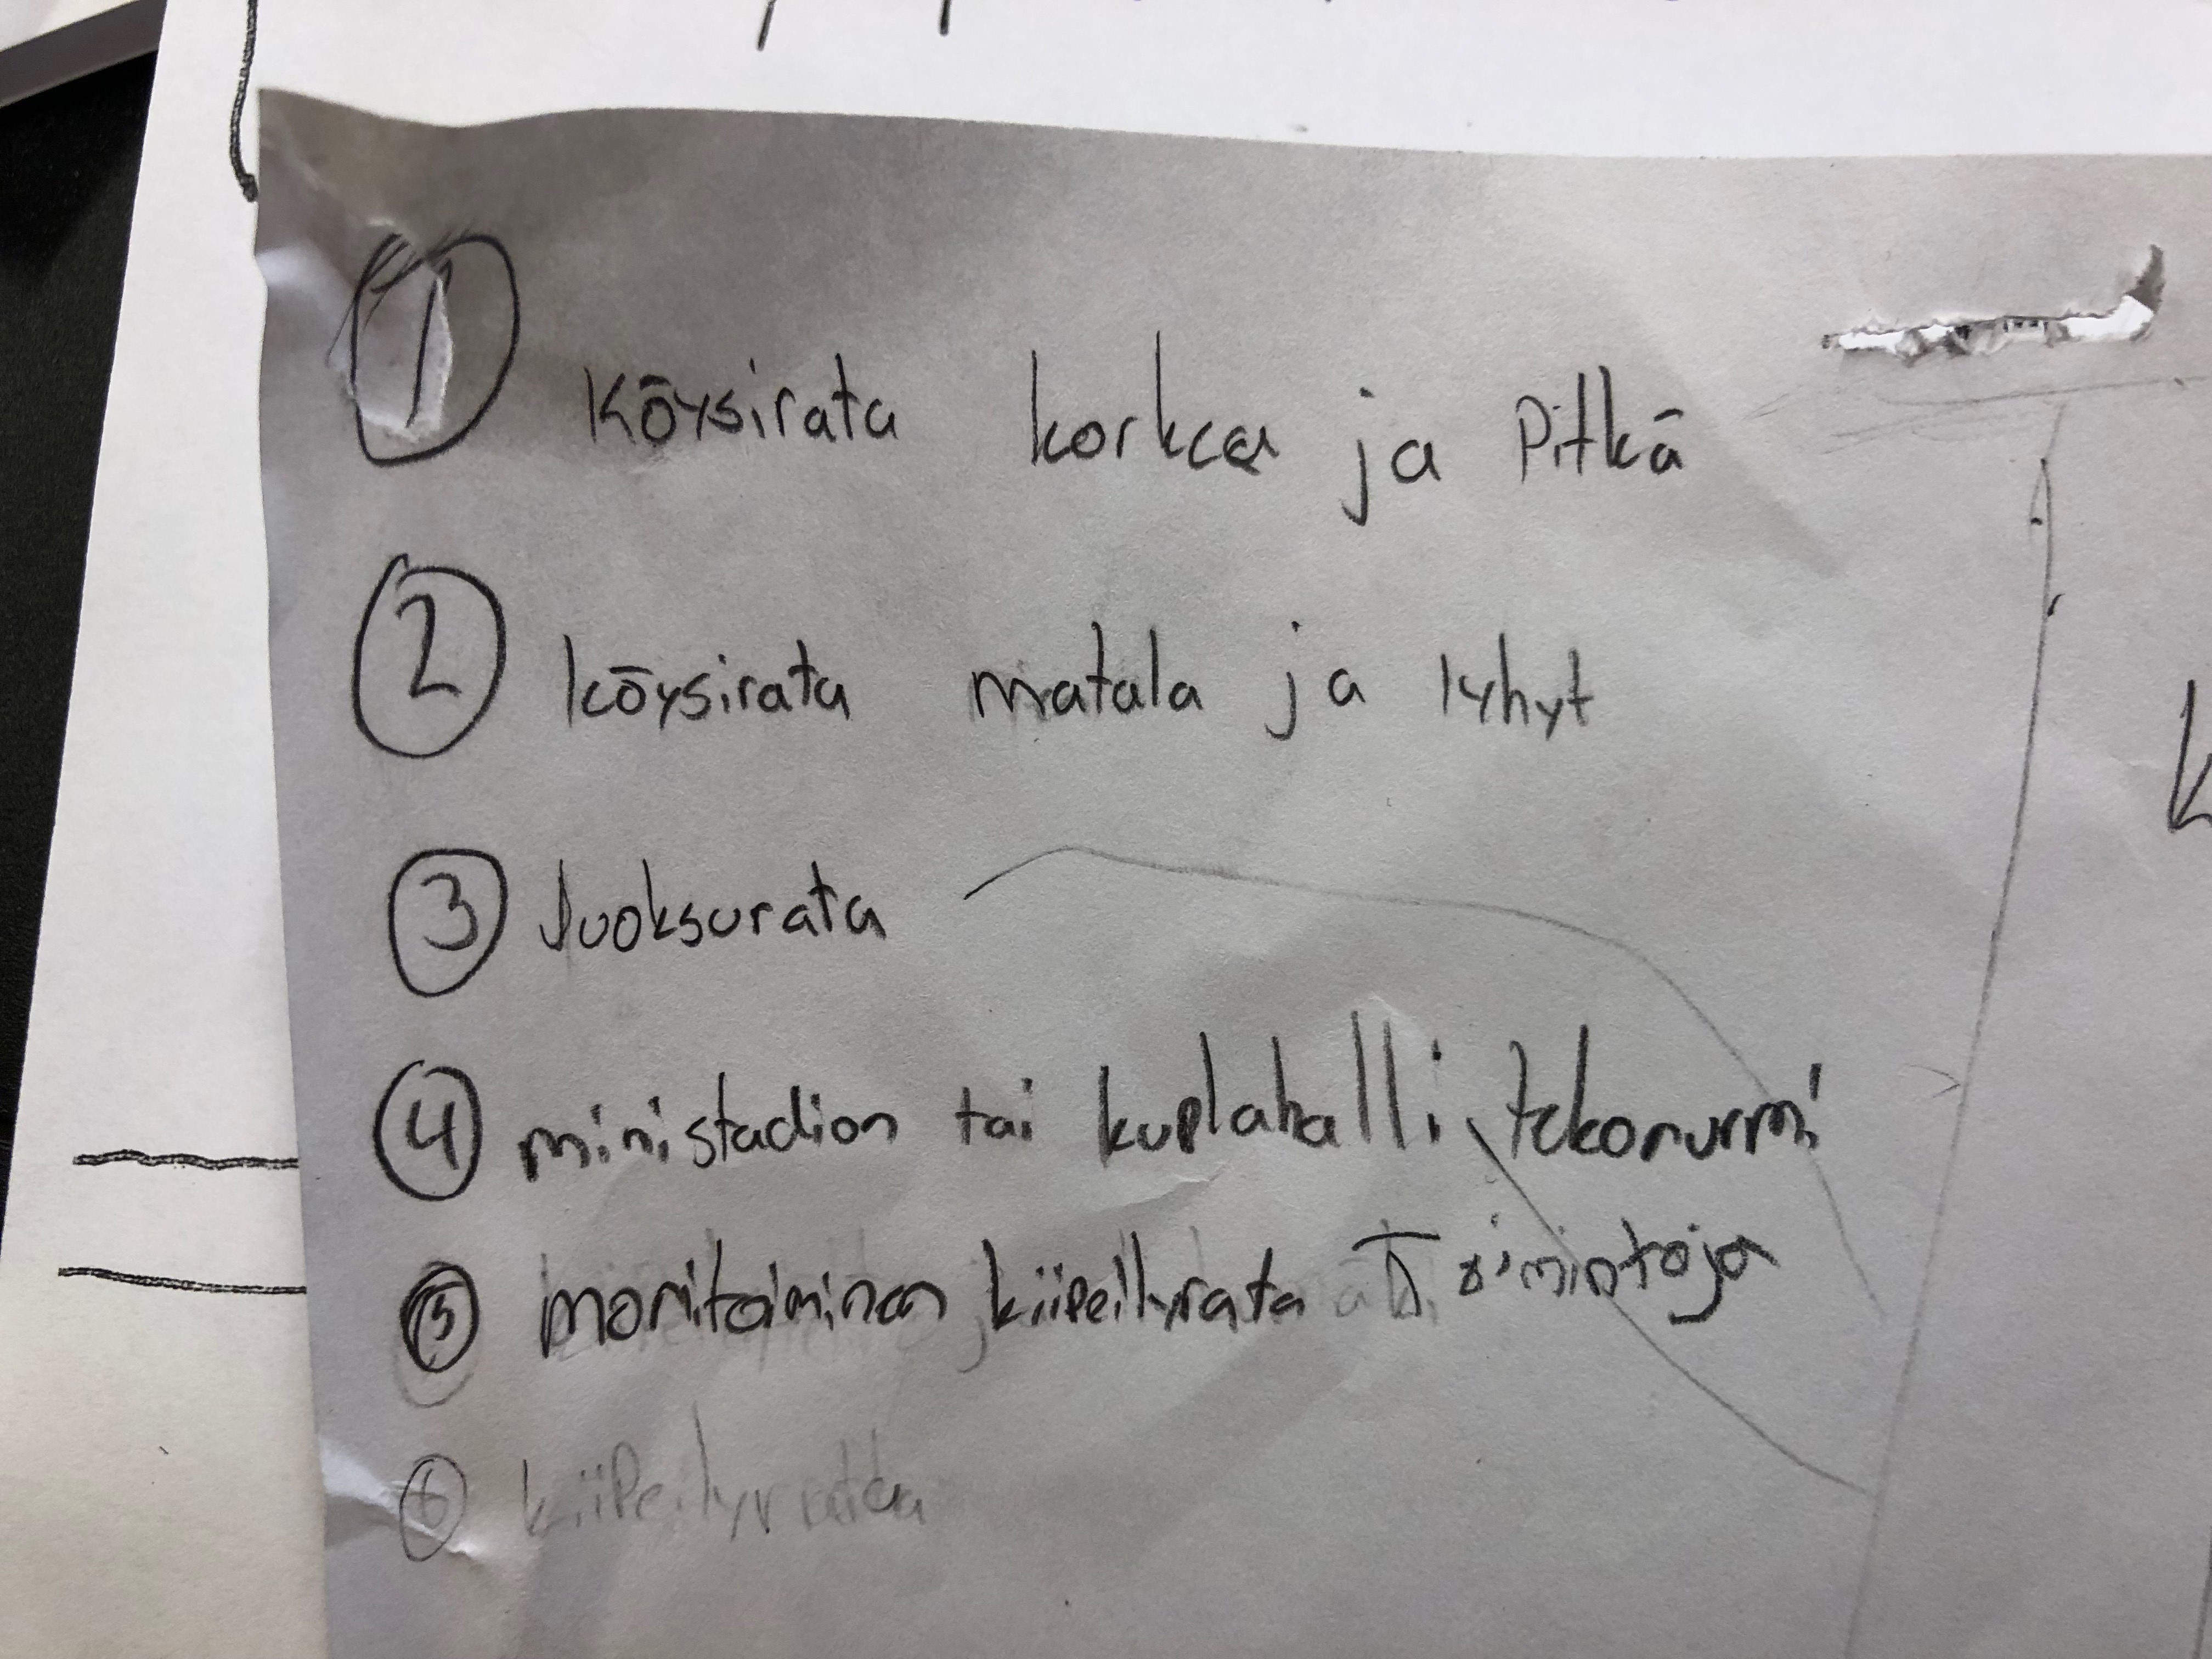 ① Köysirata korkea ja Pitkä
② köysirata matala ja lyhyt
③ Juoksurata
④ ministadion tai kuplahalli, tekonurmi
⑤ monitoiminen kiipeilyrata Toimintoja
⑥ kiipeilyrata